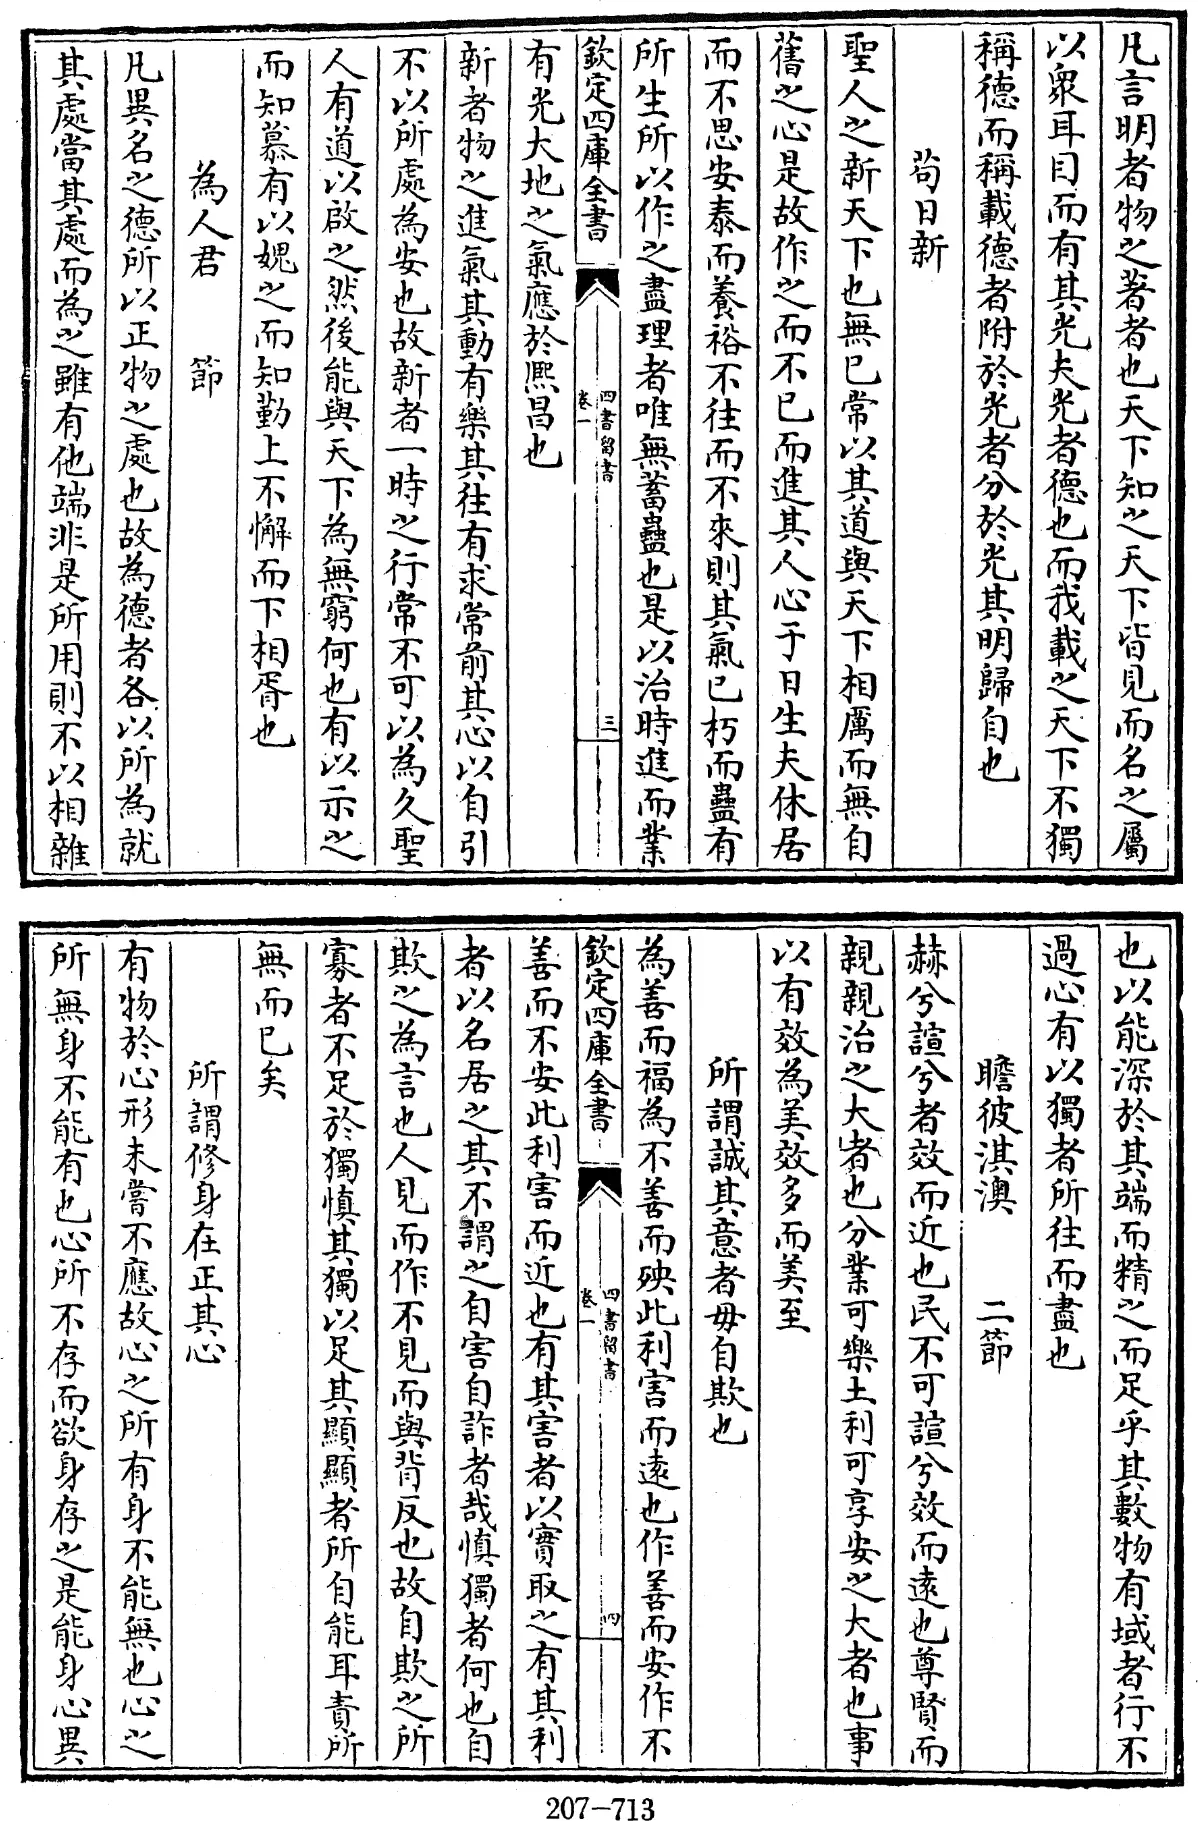 凡言明者物之著者也天下知之天下皆見而名之屬
以衆耳目而有其光夫光者德也而我載之天下不獨
稱德而稱載德者附於光者分於光其明歸自也
苟日新
聖人之新天下也無已常以其道與天下相厲而無自
舊之心是故作之而不已而進其人心于日生夫休居
而不思安泰而養裕不往而不來則其氣已朽而蠱有
所生所以作之盡理者唯無蓄蠱也是以治時進而業
欽定四庫全書
四書留書
卷一
三
有光大地之氣應於熈昌也
新者物之進氣其動有樂其往有求常前其心以自引
不以所處為安也故新者一時之行常不可以為久聖
人有道以啟之然後能與天下為無窮何也有以示之
而知慕有以媿之而知勤上不懈而下相胥也
為人君 節
凡異名之德所以正物之處也故為德者各以所為就
其處當其處而為之雖有他端非是所用則不以相雜
也以能深於其端而精之而足乎其數物有域者行不
過心有以獨者所往而盡也
瞻彼淇澳 二節
赫兮諠兮者效而近也民不可諠兮效而遠也尊賢而
親親治之大者也分業可樂土利可享安之大者也事
以有效為美效多而美至
所謂誠其意者毋自欺也
為善而福為不善而殃此利害而遠也作善而安作不
欽定四庫全書
四書留書
卷一
四
善而不安此利害而近也有其害者以實取之有其利
者以名居之其不謂之自害自詐者哉慎獨者何也自
欺之為言也人見而作不見而與背反也故自欺之所
寡者不足於獨慎其獨以足其顯顯者所自能耳責所
無而已矣
所謂修身在正其心
有物於心形未嘗不應故心之所有身不能無也心之
所無身不能有也心所不存而欲身存之是能身心異
207-713